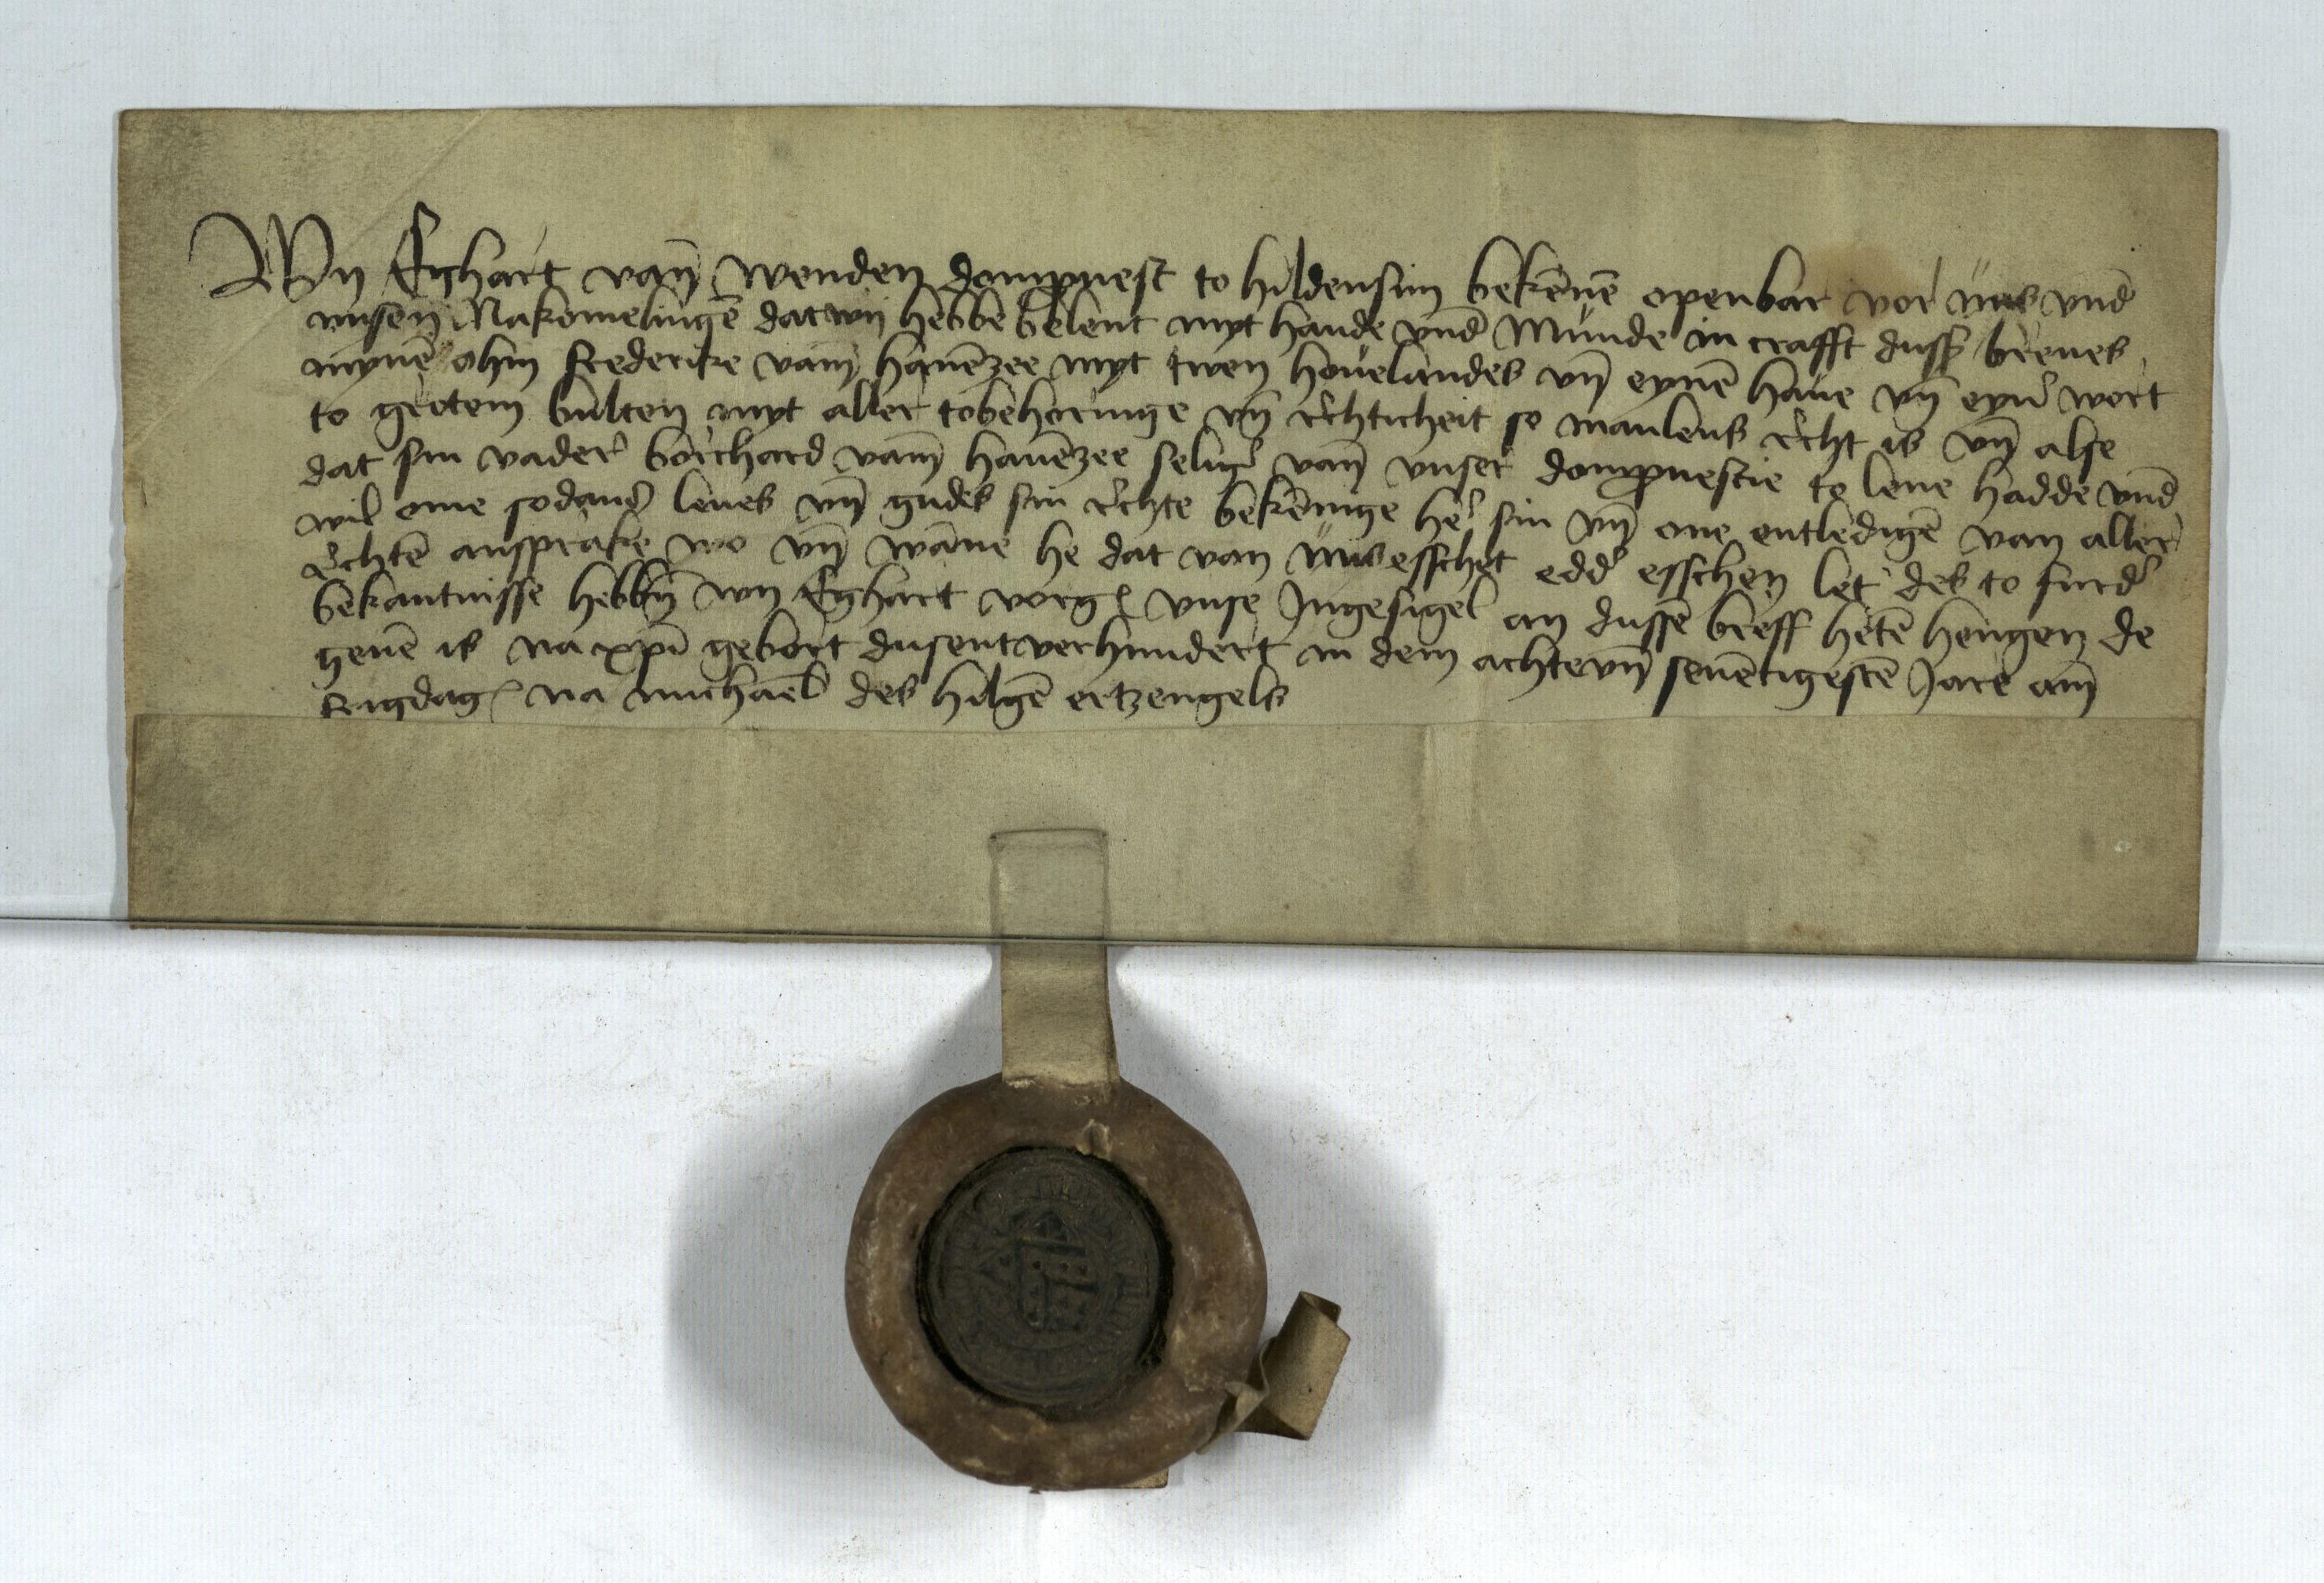 Wy Eghart van̄ wenden dompͦuest to hildensim bekēnē openbar vor uns vnd̄
vnsen Nakomelingē dat wy hebbē belent myt hande vnd̄ Munde in crafft duss̄ breues
mynē ohm frederike vam̄ hauēzee myt twen houelandes vn̄ eynē haue vn̄ eyn̄ wort
to groten bulten myt aller tobehoringe vn̄ rechticheit so manlens recht is vn̄ alse
dat sin vader borchard vam̄ hauēzee seliḡ van̄ vnser dompͦuestie to lene hadde vnd̄
wil ome sodan̄ lenes vn̄ gudes sin rechte bekēnige her̄ sin vn̄ one entledigē van aller
rechtē ansprake wo vn̄ wāne he dat van uns esschet edd̄ esschen let des to furd̄
bekantnisse hebbn̄ wy Eghart vorḡ vnse Ingesigel an dussē breff hetē hengen de
geuē is na xpī gebort dusent verhundert in dem achte vn̄ seuētigestē Jare am̄
frigdaḡ na michael des hilgē ertzengels